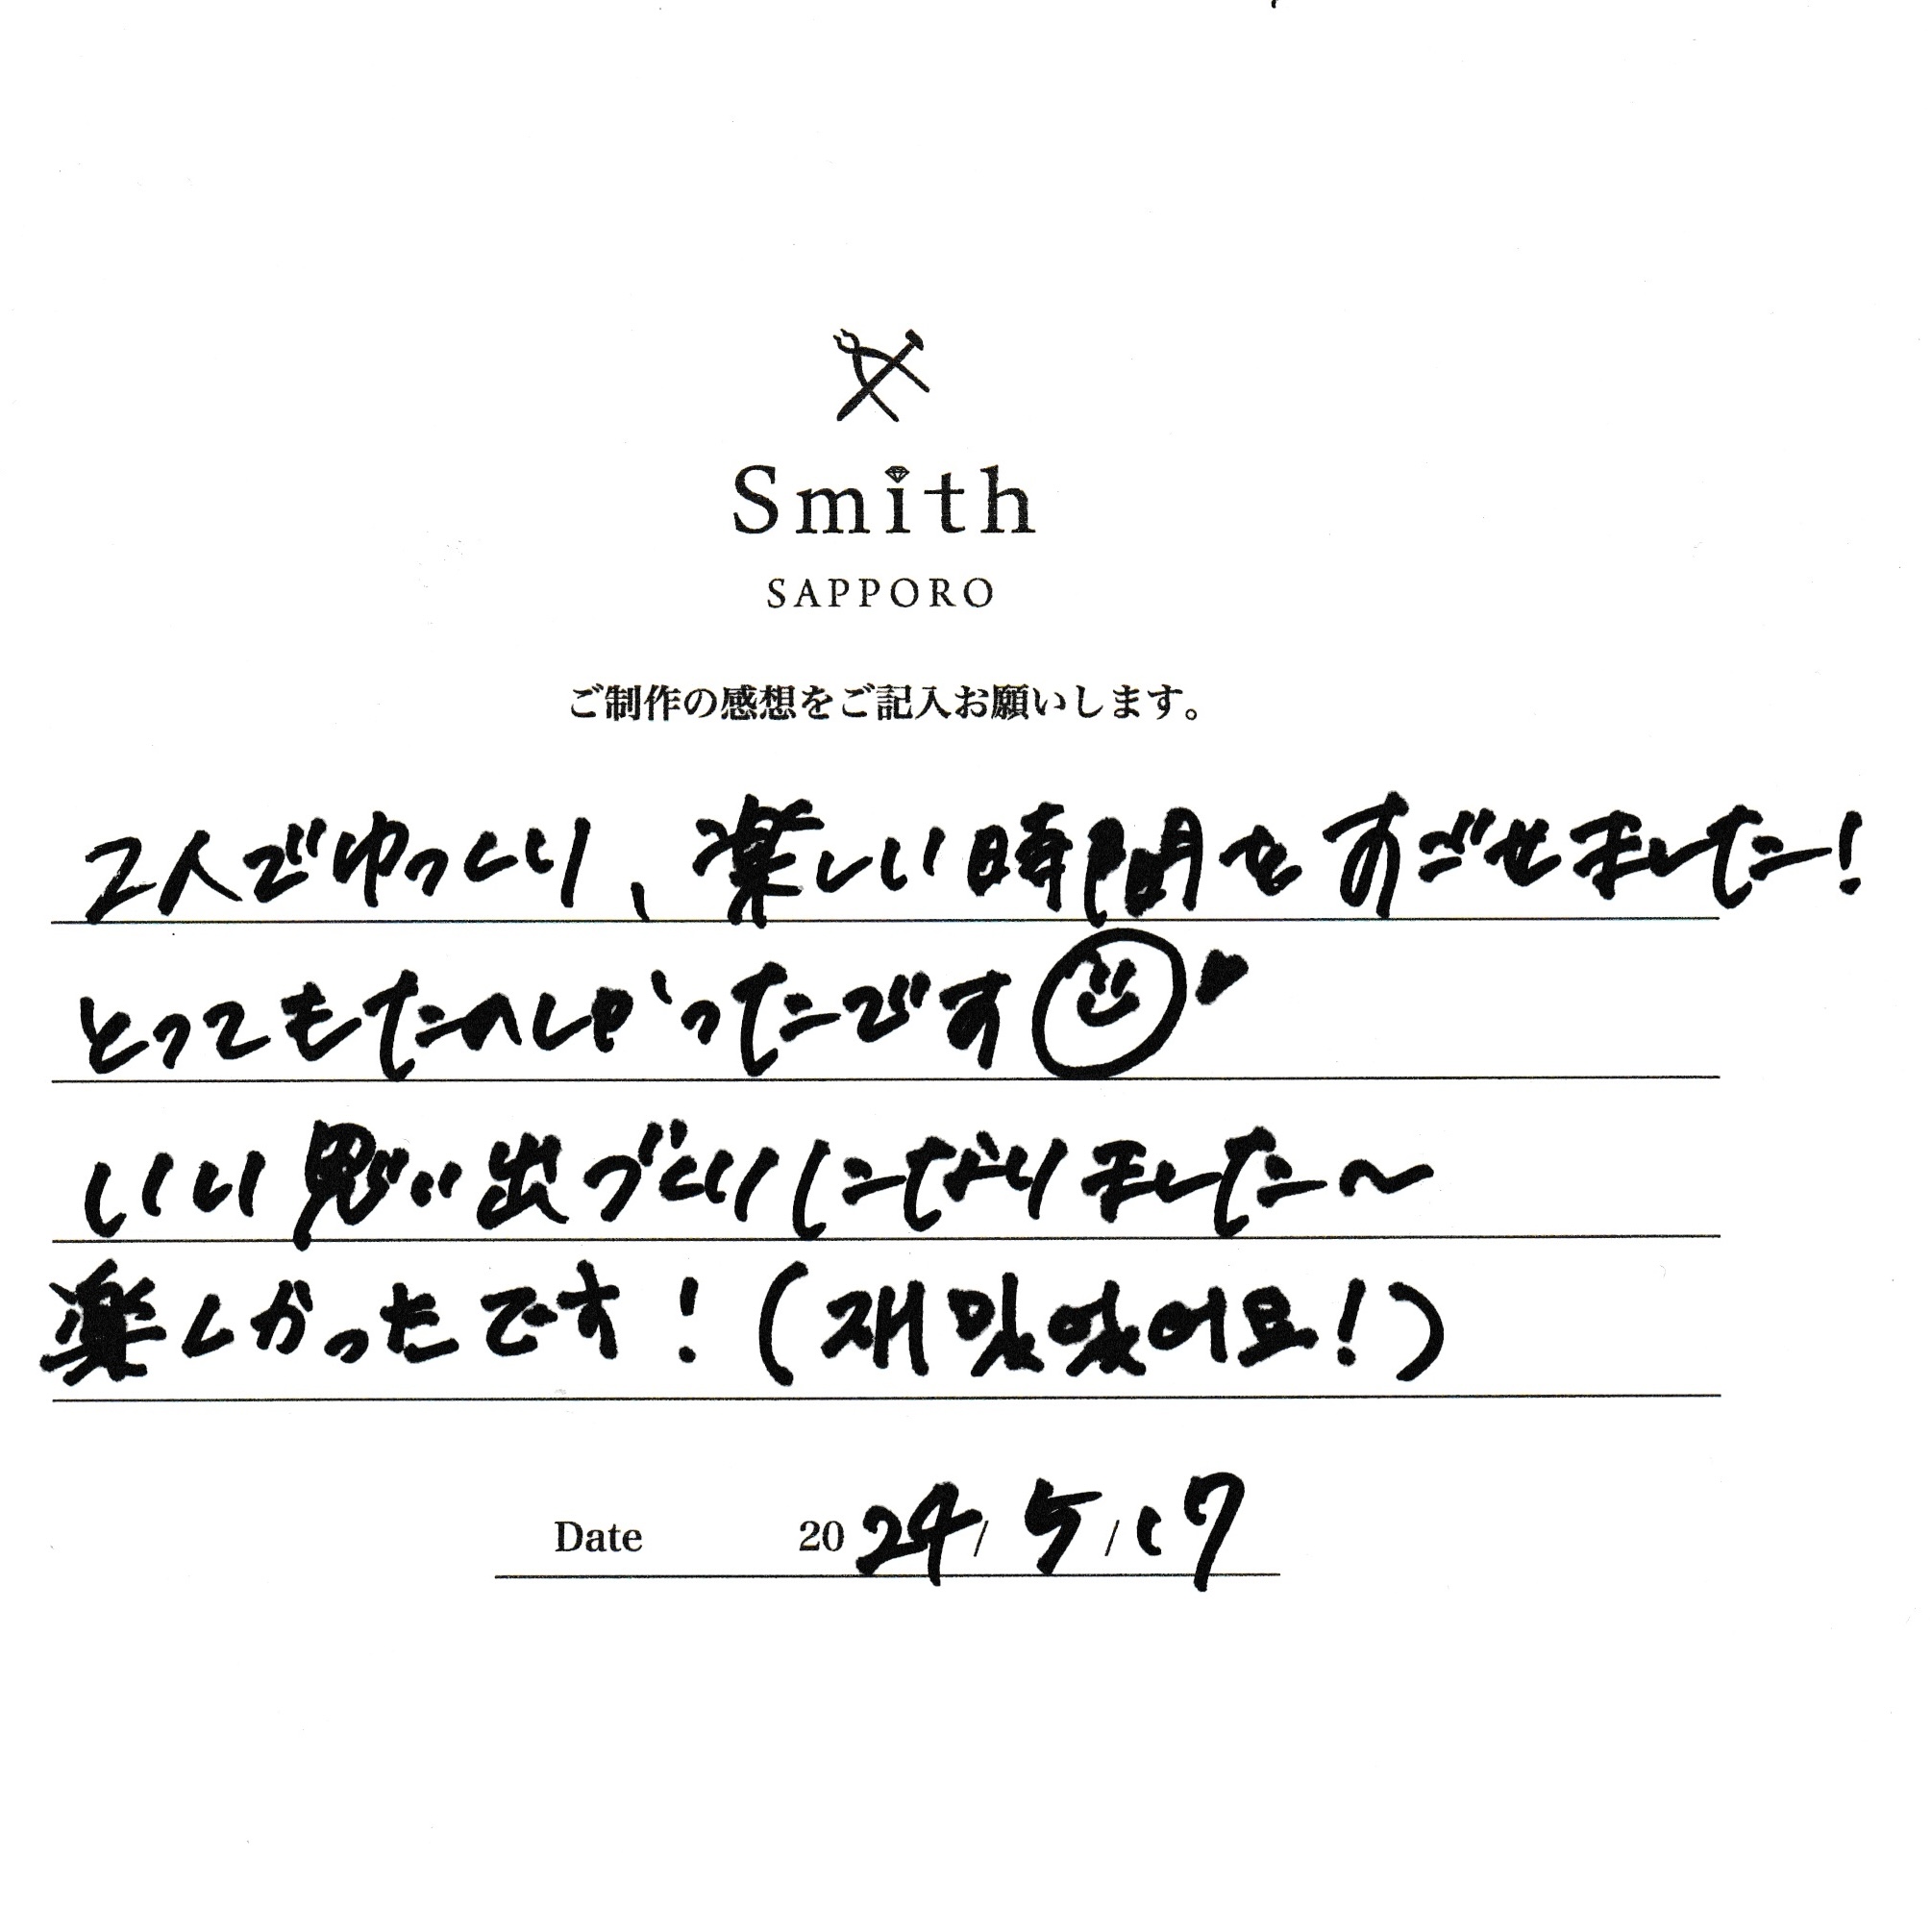 Smith
SAPPORO
ご制作の感想をご記入お願いします。
2人でゆっくり、楽しい時間をすごせました!
とってもたのしかったです
いい思い出づくりになりました〜
楽しかったです!(재밌었어요!)
Date 2024/5/17